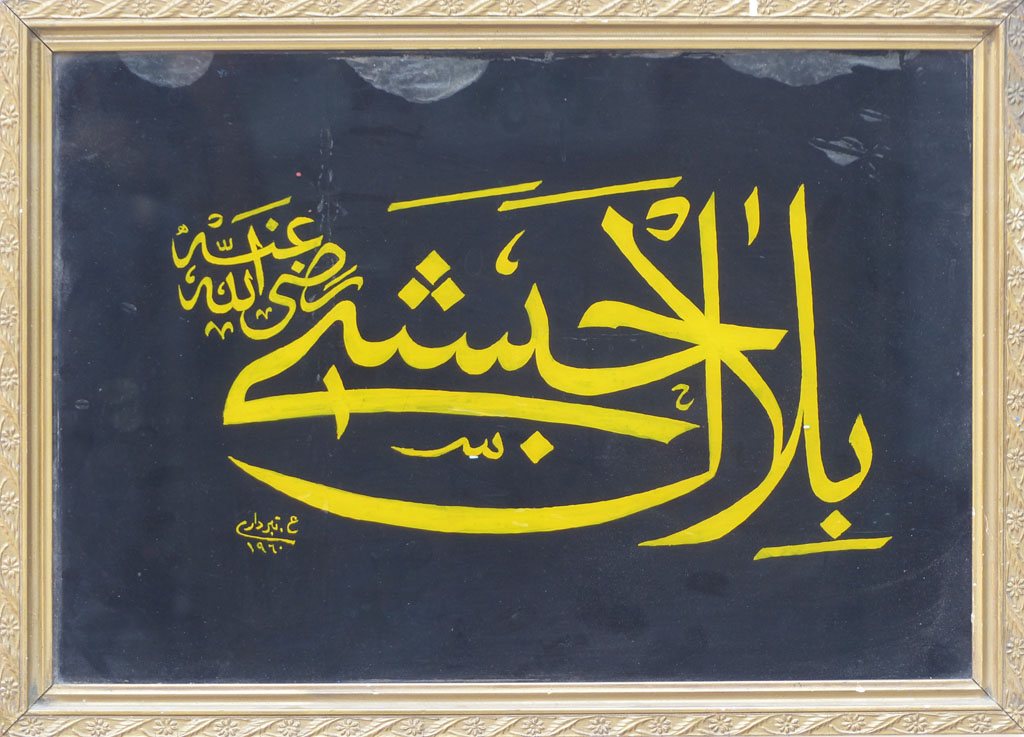 بلال حبشي
رضي الله عنه
ع. تبرداري
١٩٦٠